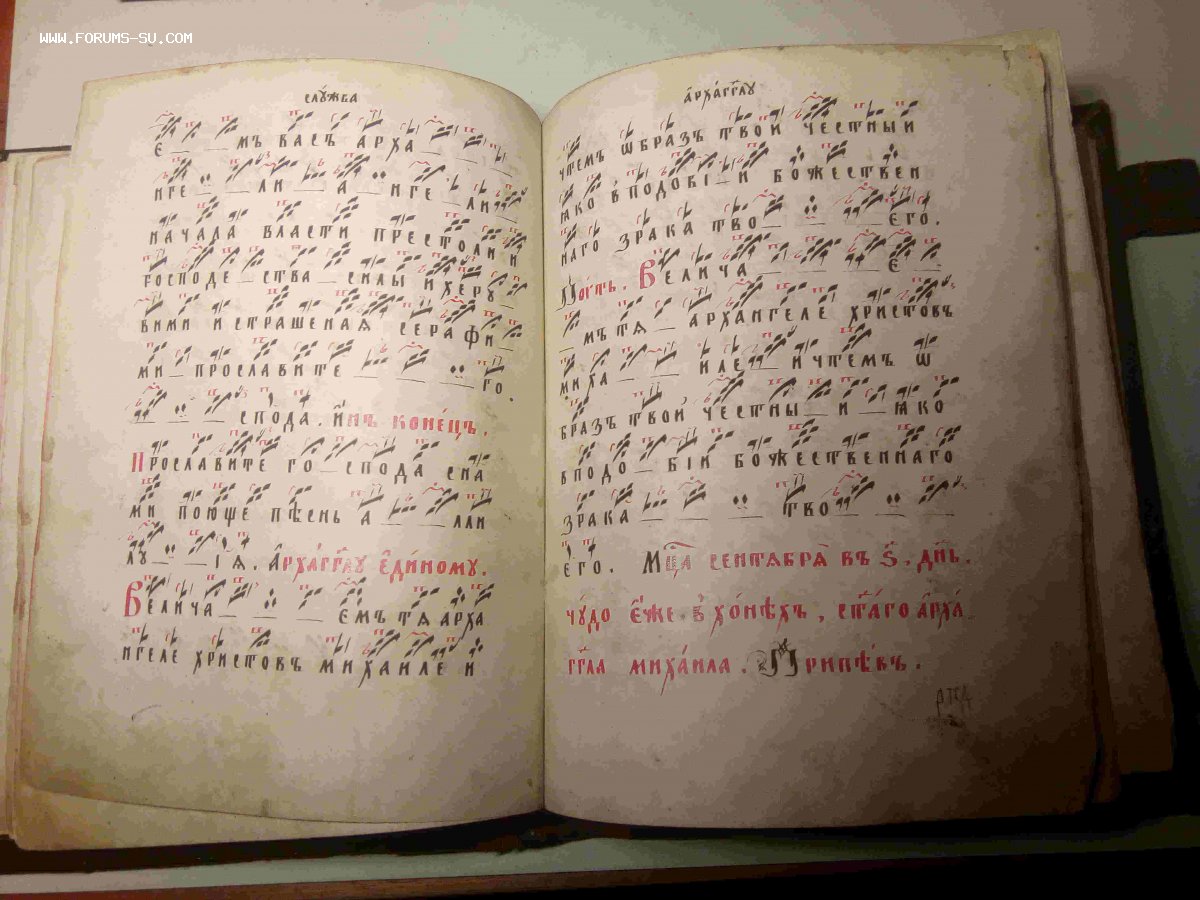 WWW.FORUMS-SU.COM
слꙋ́жба
є _ _ мъ васъ арха _ _ _
нге _ ли _ а _ нге _ ли _
начала власти престоли и
господе _ ства _ силы и херꙋ _
вими и страшеная серафи _
ми _ прославите _ _ _ го _
_ _ _ спода . и҆́нъ конецъ .
Прославите го _ спода сна
ми поюще пѣснь а _ _ лли
лꙋ _ _ іѧ . А҆рха́гг҃лꙋ є҆ди́номꙋ .
Велича _ _ _ _ ємъ тѧ арха
нгеле христовъ михаиле и
а҆рха́гг҃лꙋ
чтемъ ѡбразъ твои честныи
ꙗко в подобі _ и божествен
наго зрака тво _ _ _ _ єго .
Велича _ _ _ _ є _
_ мъ тѧ _ архангеле христовъ
миха _ _ _ иле _ и чтемъ ѡ
бразъ твои честны _ и _ ꙗко
вподо _ бїи божественнаго
зрака _ _ _ тво _ _ _
єго . Мц҃а сентабра̀ въ ѕ҃ . дн҃ь .
чꙋ́до є҆́же в хо́нѣхъ , ст҃а́го а҆рха́
гг҃ла миха́ила . Припѣ́въ .